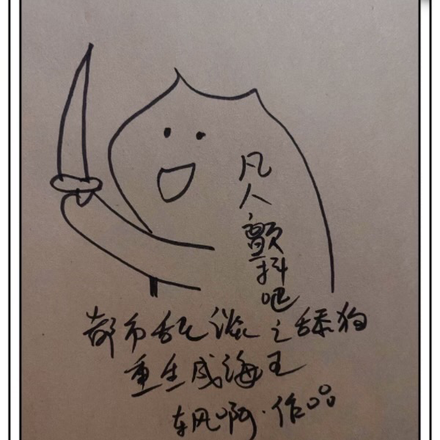 凡人,颤抖吧
都市乱谈之舔狗
重生成海王
东风啊·作。